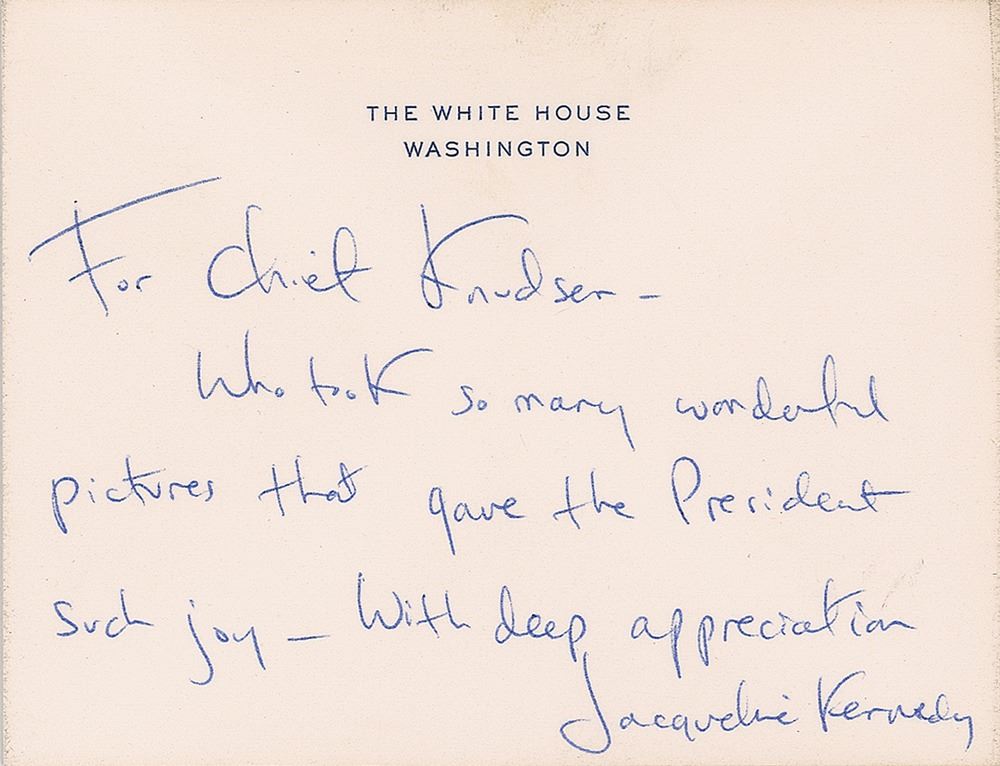 THE WHITE HOUSE
WASHINGTON
For Chief Knudsen –
Who took so many wonderful
pictures that gave the President
such joy – With deep appreciation
Jacqueline Kennedy